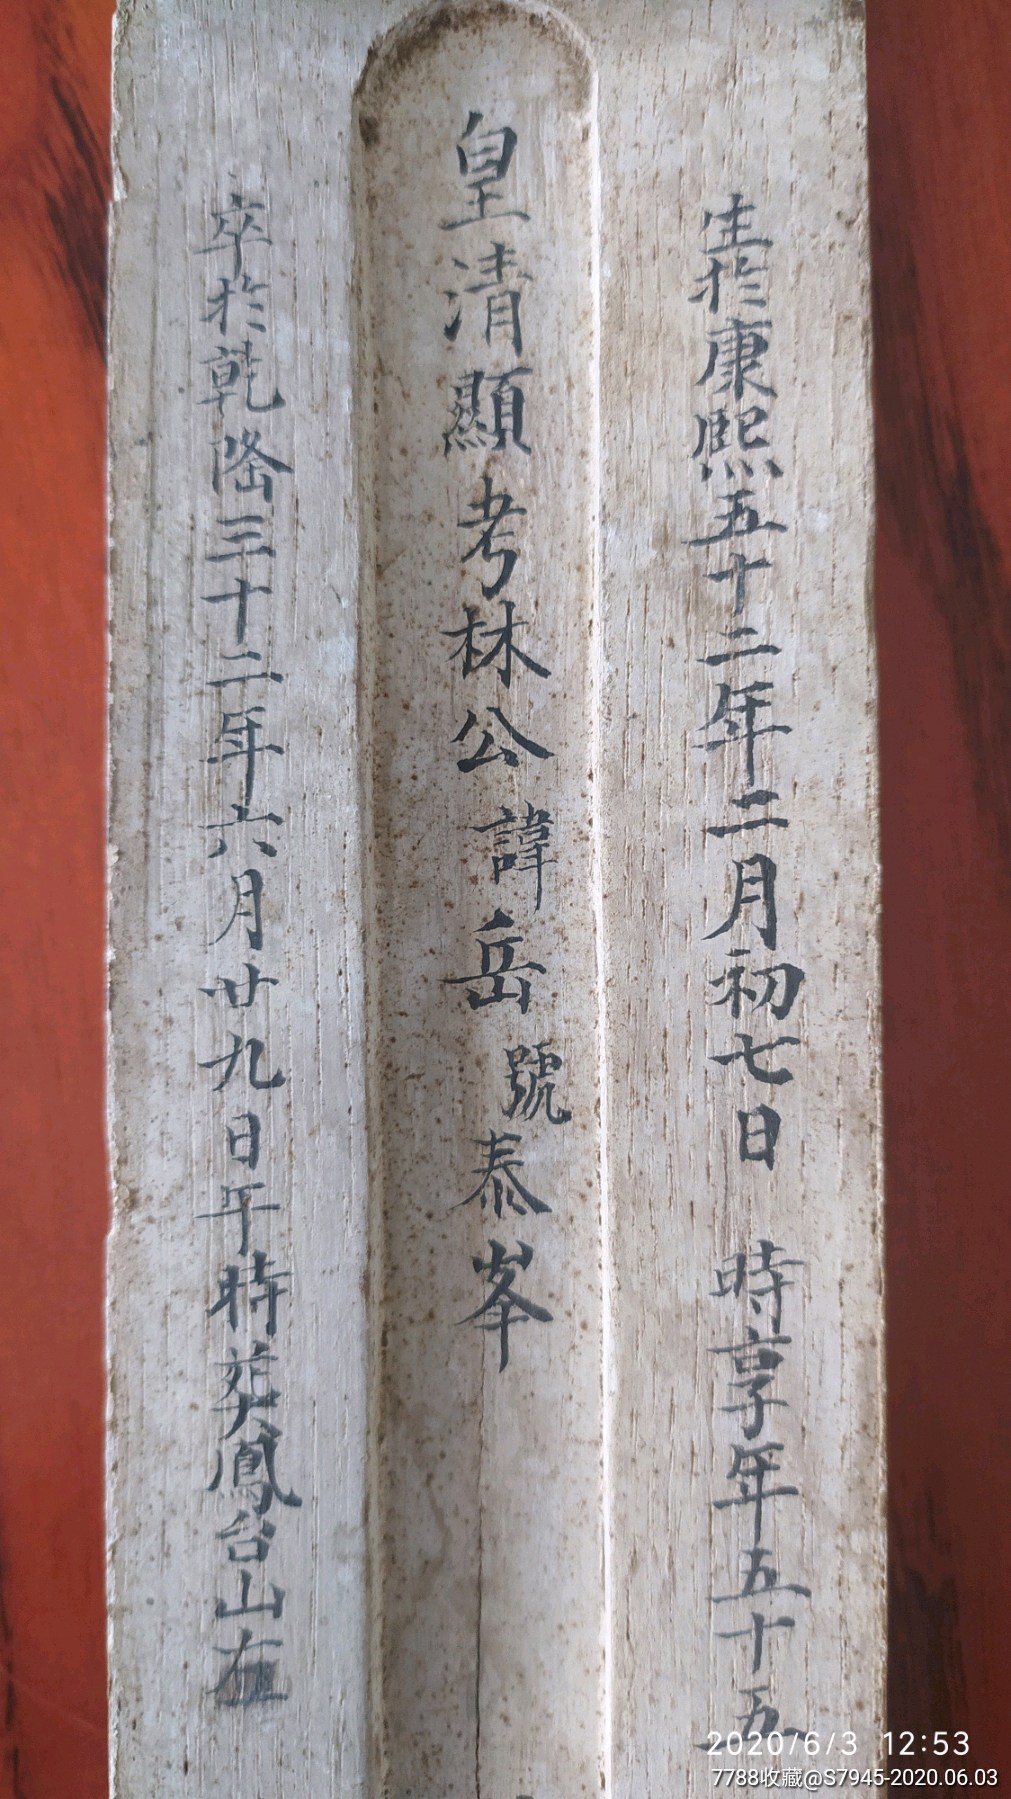 生於康熙五十二年二月初七日 時享年五十五
皇清顯考林公諱岳號泰峯
卒於乾隆三十二年六月廿九日午時葬鳳台山右
2020/6/3 12:53
7788收藏@S7945-2020.06.03